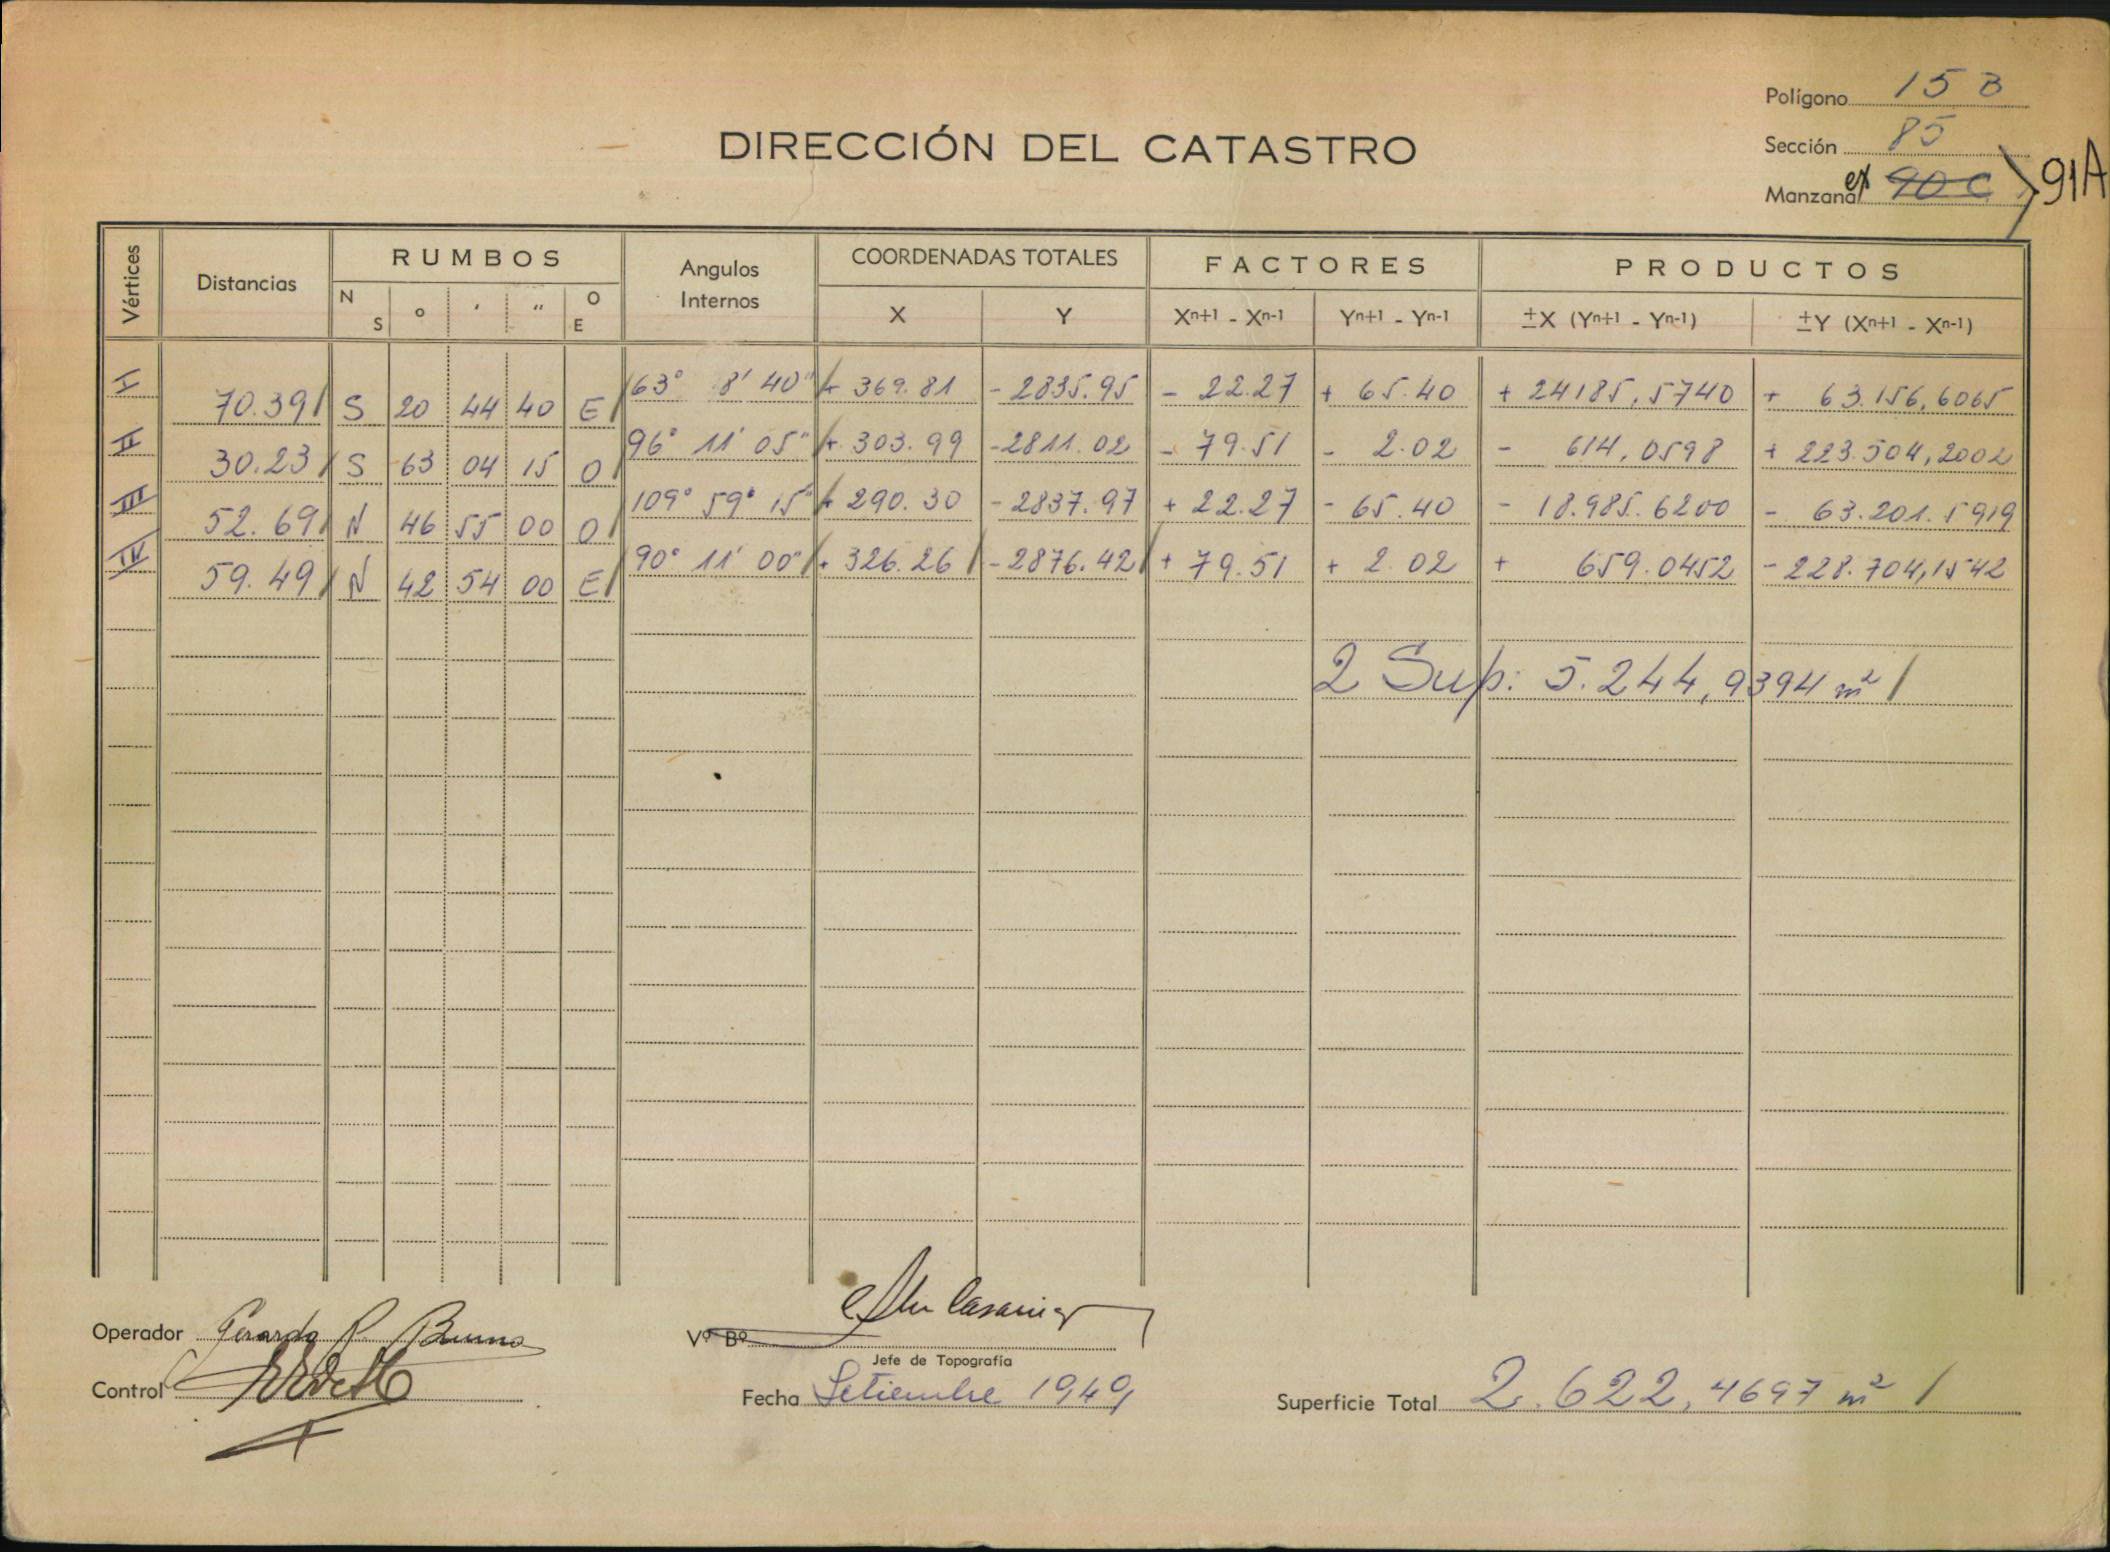 Polígono 15 B
DIRECCIÓN DEL CATASTRO
Sección 85
Manzana ex 90 C 91A
Vértices Distancias RUMBOS Angulos Internos COORDENADAS TOTALES FACTORES PRODUCTOS
N S o ' " O E X Y Xn+1 - Xn-1 Yn+1 - Yn-1 ±X (Yn+1 - Yn-1) ±Y (Xn+1 - Xn-1)
I 70.39 S 20 44 40 E 63° 8' 40" + 369.81 - 2835.95 - 22.27 + 65.40 + 24185,5740 + 63.156,6065
II 30.23 S 63 04 15 O 96° 11' 05" + 303.99 - 2811.02 - 79.51 - 2.02 - 614,0598 + 223.504,2002
III 52.69 N 46 55 00 O 109° 59' 15" + 290.30 - 2837.97 + 22.27 - 65.40 - 18.985.6200 - 63.201.5919
IV 59.49 N 42 54 00 E 90° 11' 00" + 326.26 - 2876.42 + 79.51 + 2.02 + 659.0452 - 228.704,1542
2 Sup: 5.244,9394 m²
Operador Gerardo R. Bruno
Vº Bº
Jefe de Topografía
Control
Fecha Setiembre 1949
Superficie Total 2.622,4697 m²